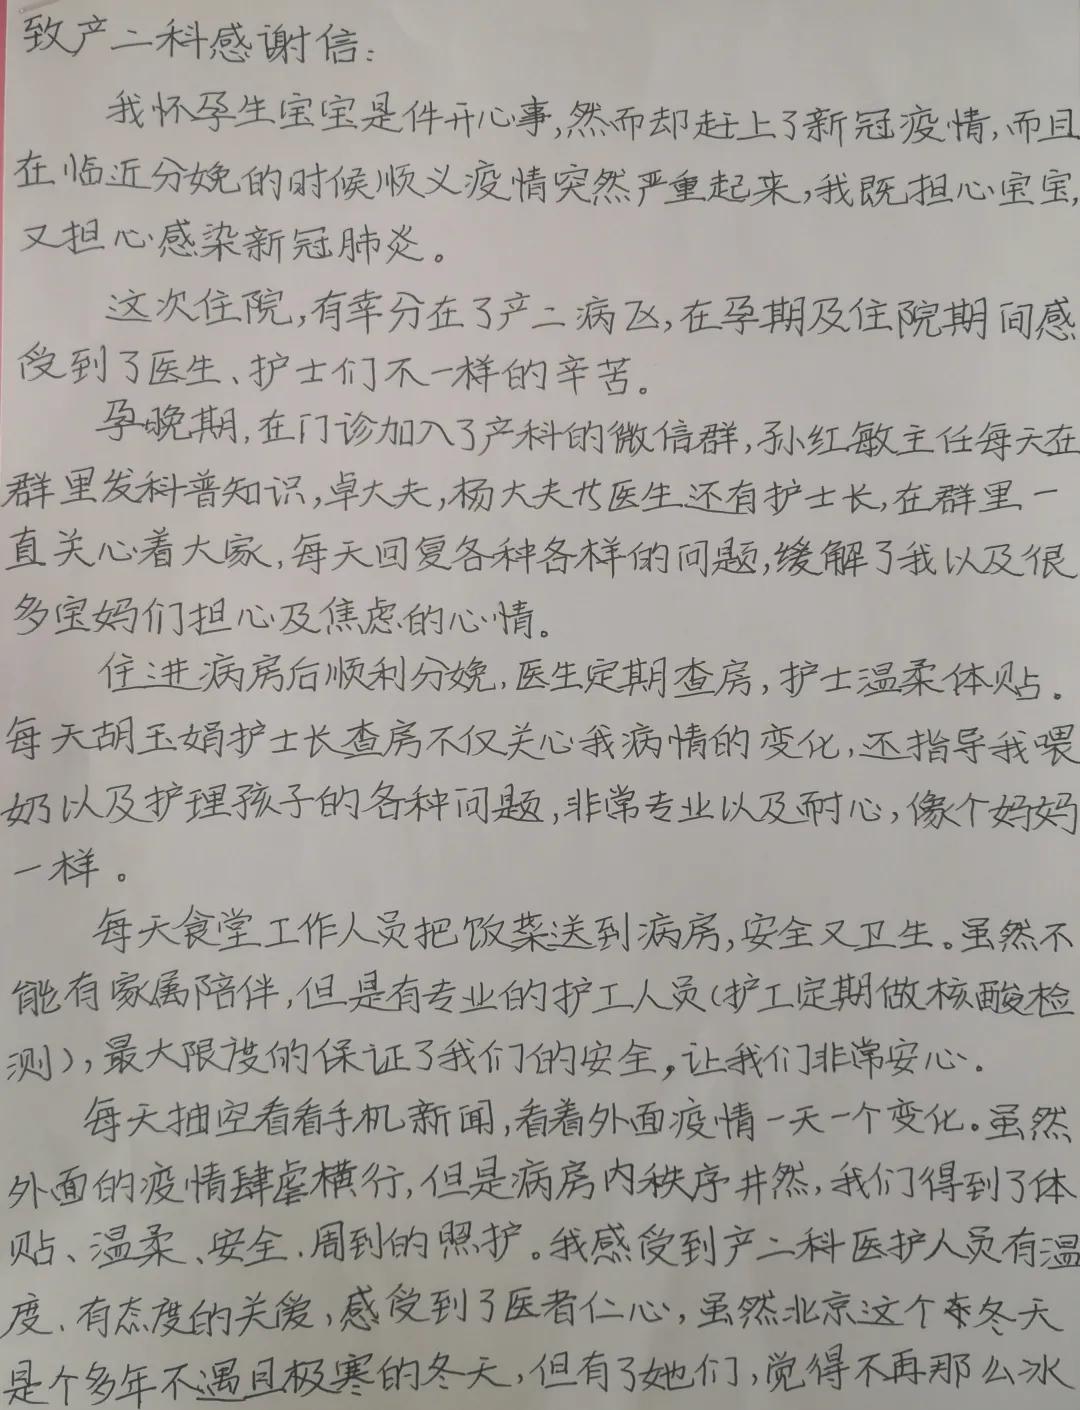 致产二科感谢信:
我怀孕生宝宝是件开心事,然而却赶上了新冠疫情,而且
在临近分娩的时候顺义疫情突然严重起来,我既担心宝宝,
又担心感染新冠肺炎。
这次住院,有幸分在了产二病区,在孕期及住院期间感
受到了医生、护士们不一样的辛苦。
孕晚期,在门诊加入了产科的微信群,孙红敏主任每天在
群里发科普知识,卓大夫,杨大夫等医生还有护士长,在群里一
直关心着大家,每天回复各种各样的问题,缓解了我以及很
多宝妈们担心及焦虑的心情。
住进病房后顺利分娩,医生定期查房,护士温柔体贴。
每天胡玉娟护士长查房不仅关心我病情的变化,还指导我喂
奶以及护理孩子的各种问题,非常专业以及耐心,像个妈妈
一样。
每天食堂工作人员把饭菜送到病房,安全又卫生。虽然不
能有家属陪伴,但是有专业的护工人员(护工定期做核酸检
测),最大限度的保证了我们的安全,让我们非常安心.
每天抽空看看手机新闻,看着外面疫情一天一个变化。虽然
外面的疫情肆虐横行,但是病房内秩序井然,我们得到了体
贴、温柔、安全、周到的照护。我感受到产二科医护人员有温
度、有态度的关爱,感受到了医者仁心,虽然北京这个冬天
是个多年不遇且极寒的冬天,但有了她们,觉得不再那么冰